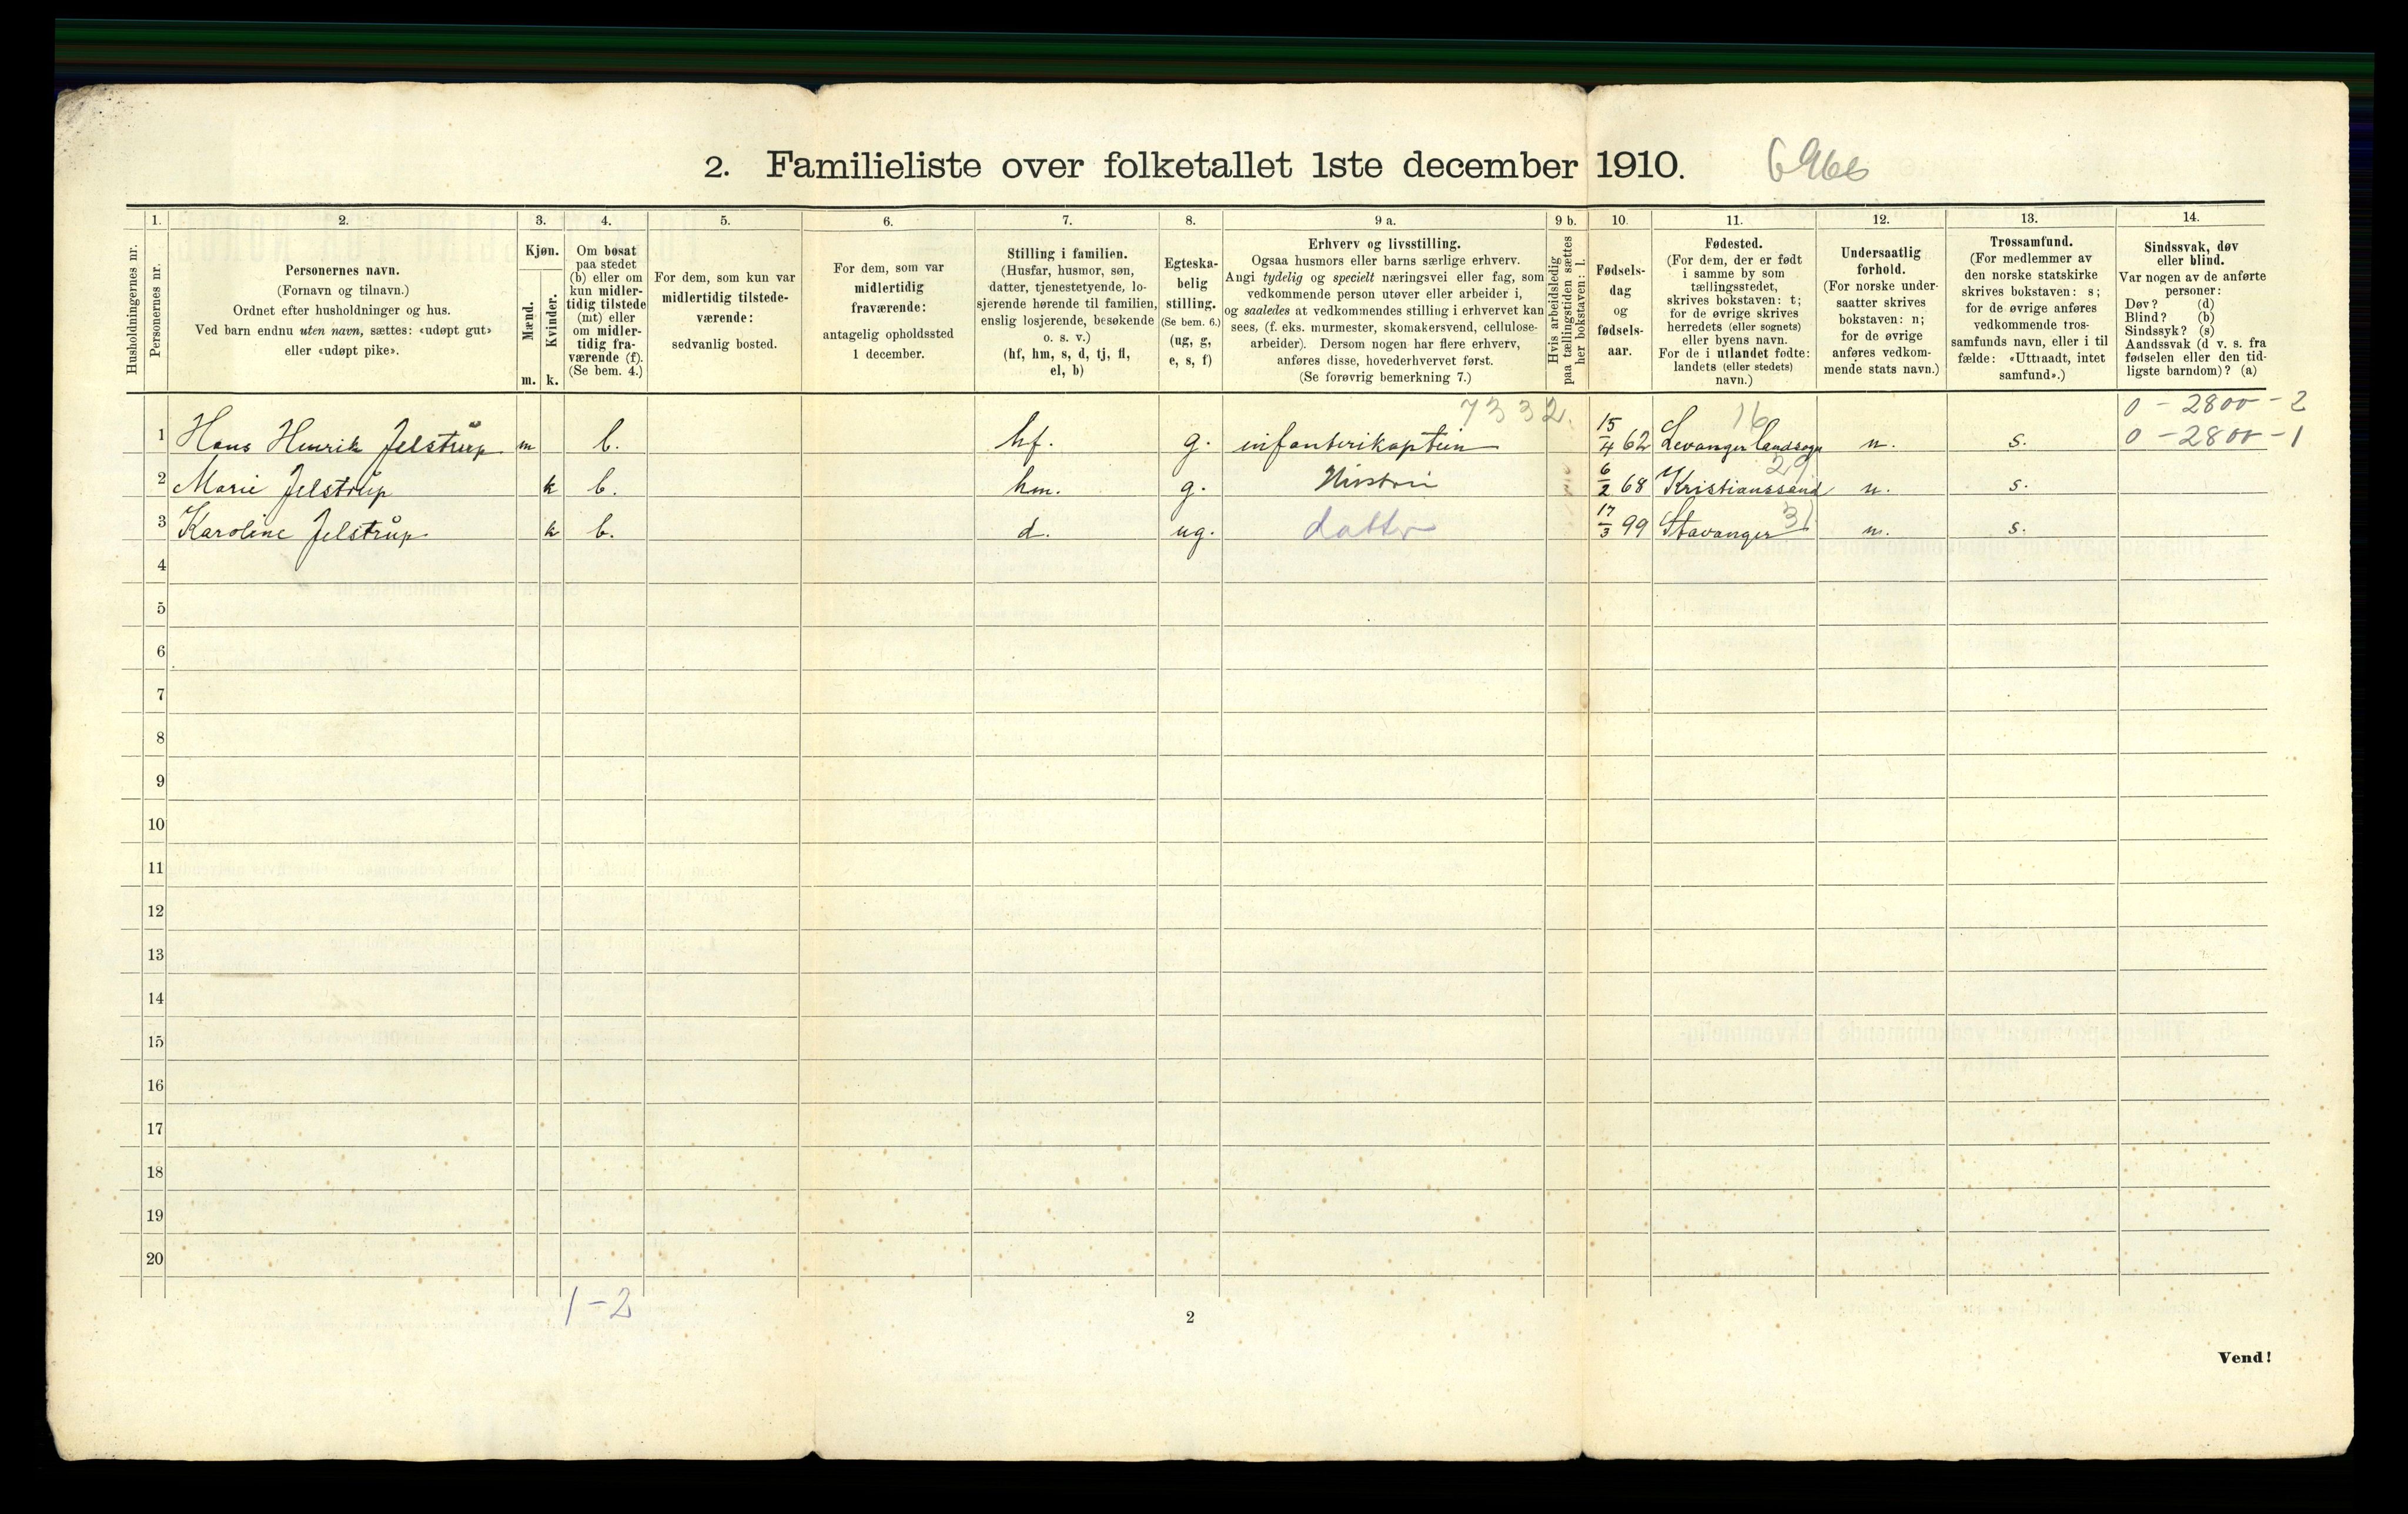 2. Familieliste over folketallet 1ste december 1910.
1. 2. 3. 4. 5. 6. 7. 8. 9 a. 9 b. 10. 11. 12. 13. 14.
Husholdningernes nr.
Personernes nr.
Personernes navn.
(Fornavn og tilnavn.)
Ordnet efter husholdninger og hus.
Ved barn endnu uten navn, sættes: «udøpt gut»
eller «udøpt pike».
Kjøn.
Mænd.
Kvinder.
m. k.
Om bosat
paa stedet
(b) eller om
kun midler-
tidig tilstede
(mt) eller
om midler-
tidig fra-
værende (f).
(Se bem. 4.)
For dem, som kun var
midlertidig tilstede-
værende:
sedvanlig bosted.
For dem, som var
midlertidig
fraværende:
antagelig opholdssted
1 december.
Stilling i familien.
(Husfar, husmor, søn,
datter, tjenestetyende, lo-
sjerende hørende til familien,
enslig losjerende, besøkende
o. s. v.)
(hf, hm, s, d, tj, fl,
el, b)
Egteska-
belig
stilling.
(Se bem. 6.)
(ug, g,
e, s, f)
Erhverv og livsstilling.
Ogsaa husmors eller barns særlige erhverv.
Angi tydelig og specielt næringsvei eller fag, som
vedkommende person utøver eller arbeider i,
og saaledes at vedkommendes stilling i erhvervet kan
sees, (f. eks. murmester, skomakersvend, cellulose-
arbeider). Dersom nogen har flere erhverv,
anføres disse, hovederhvervet først.
(Se forøvrig bemerkning 7.)
Hvis arbeidsledig
paa tællingstiden sættes
her bokstaven: l.
Fødsels-
dag
og
fødsels-
aar.
Fødested.
(For dem, der er født
i samme by som
tællingsstedet,
skrives bokstaven: t;
for de øvrige skrives
herredets (eller sognets)
eller byens navn.
For de i utlandet fødte:
landets (eller stedets)
navn.)
Undersaatlig
forhold.
(For norske under-
saatter skrives
bokstaven: n;
for de øvrige
anføres vedkom-
mende stats navn.)
Trossamfund.
(For medlemmer av
den norske statskirke
skrives bokstaven: s;
for de øvrige anføres
vedkommende tros-
samfunds navn, eller i til
fælde: «Uttraadt, intet
samfund».)
Sindssvak, døv
eller blind.
Var nogen av de anførte
personer:
Døv? (d)
Blind? (b)
Sindssyk? (s)
Aandssvak (d v. s. fra
fødselen eller den tid-
ligste barndom)? (a)
7332. 16 0 - 2800 - 2
1 Hans Henrik Jelstrup m b. hf. g. infanterikaptein 15/4 62 Levanger landsogn n. s. 0 - 2800 - 1
29
2 Marie Jelstrup k b. hm. g. Hustru 6/2 68 Kristianssand n. s.
3 Karoline Jelstrup k b. d. ug. datter 17/3 99 Stavanger 31 n. s.
4
5
6
7
8
9
10
11
12
13
14
15
16
17
18
19
20
1-2
2
Vend!